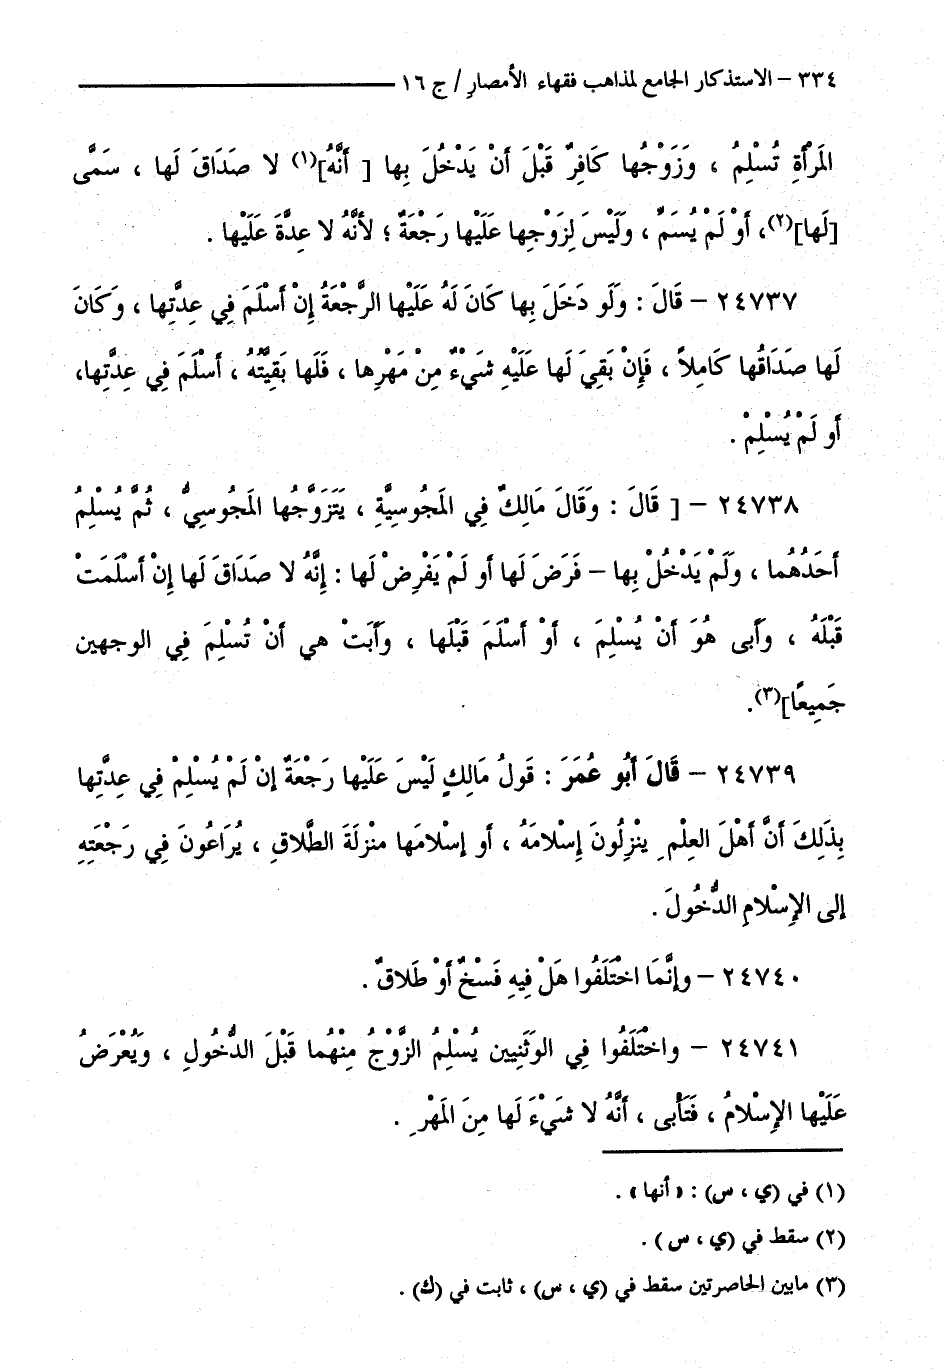 ٣٣٤ – الاستذكار الجامع لمذاهب فقهاء الأمصارِ / ج ١٦
المَرْأَةِ تُسْلِمُ ، وَزَوْجُها كَافِرٌ قَبْلَ أَنْ يَدْخُلَ بِها [ أَنَّهُ](١) لا صَدَاقَ لَها ، سَمَّى
[لَها](٢)، أَوْ لَمْ يُسَمِّ ، وَلَيْسَ لِزَوْجِها عَلَيْها رَجْعَةٌ ؛ لأَنَّهُ لا عِدَّةَ عَلَيْها .
٢٤٧٣٧ – قَالَ : وَلَو دَخَلَ بِها كَانَ لَهُ عَلَيْها الرَّجْعَةُ إِنْ أَسْلَمَ فِي عِدَّتِها ، وَكَانَ
لَها صَدَاقُها كَامِلاً ، فَإِنْ بَقِيَ لَها عَلَيْهِ شَيْءٌ مِنْ مَهْرِها ، فَلَها بَقِيَّتُهُ ، أَسْلَمَ فِي عِدَّتِها،
أَو لَمْ يُسْلِمْ .
٢٤٧٣٨ – [ قَالَ : وَقَالَ مَالِكٌ فِي المَجُوسِيَّةِ ، يَتَزَوَّجُها المَجُوسِيُّ ، ثُمَّ يُسْلِمُ
أَحَدُهُما ، وَلَمْ يَدْخُلْ بِها – فَرَضَ لَها أَو لَمْ يَفْرِضْ لَها : إِنَّهُ لا صَدَاقَ لَها إِنْ أَسْلَمَتْ
قَبْلَهُ ، وَأَبى هُوَ أَنْ يُسْلِمَ ، أَوْ أَسْلَمَ قَبْلَها ، وَأَبَتْ هي أَنْ تُسْلِمَ فِي الوجهين
جَمِيعًا](٣).
٢٤٧٣٩ – قَالَ أَبُو عُمَرَ : قَولُ مَالِكٍ لَيْسَ عَلَيْها رَجْعَةٌ إِنْ لَمْ يُسْلِمْ فِي عِدَّتِها
بِذَلِكَ أَنَّ أَهْلَ العِلْمِ يَنْزِلُونَ إِسْلامَهُ ، أَو إِسْلامَها مَنْزِلَةَ الطَّلاقِ ، يُرَاعُونَ فِي رَجْعَتِهِ
إلى الإِسْلامِ الدُّخُولَ .
٢٤٧٤٠ – وإِنَّمَا اخْتَلَفُوا هَلْ فِيهِ فَسْخٌ أَوْ طَلاقٌ .
٢٤٧٤١ – واخْتَلَفُوا فِي الوَثَنِيين يُسْلِمُ الزَّوْجُ مِنْهُما قَبْلَ الدُّخُولِ ، وَيُعْرَضُ
عَلَيْها الإِسْلامُ ، فَتَأْبى ، أَنَّهُ لا شَيْءَ لَها مِنَ المَهْرِ .
(١) في (ي ، س) : « أنها » .
(٢) سقط في (ي ، س ) .
(٣) مابين الحاصرتين سقط في (ي ، س) ، ثابت في (ك) .